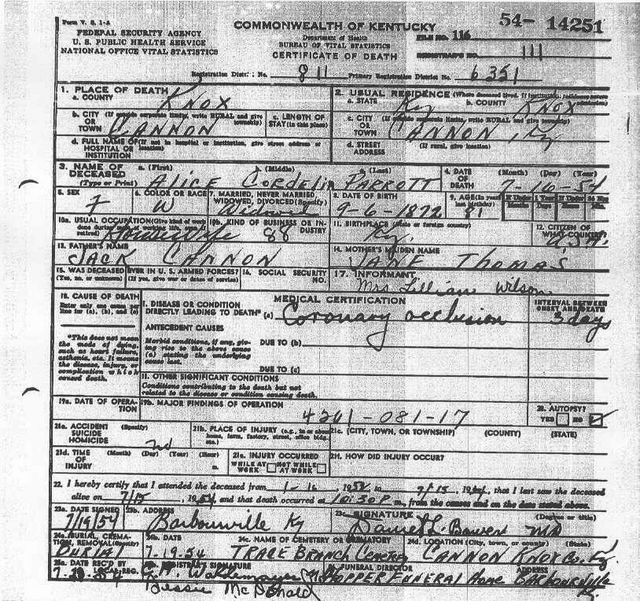 Form V. S. 1-A
FEDERAL SECURITY AGENCY
U. S. PUBLIC HEALTH SERVICE
NATIONAL OFFICE VITAL STATISTICS
COMMONWEALTH OF KENTUCKY
Department of Health
BUREAU OF VITAL STATISTICS
CERTIFICATE OF DEATH
54- 14251
FILE NO. 116
REGISTRAR'S NO. 111
Registration Dist. No. 811 Primary Registration District No. 6351
1. PLACE OF DEATH
a. COUNTY KNOX
2. USUAL RESIDENCE (Where deceased lived. If institution: residence before admission)
a. STATE Ky b. COUNTY KNOX
b. CITY OR TOWN CANNON
c. LENGTH OF STAY (in this place)
c. CITY OR TOWN CANNON, Ky
d. FULL NAME OF HOSPITAL OR INSTITUTION (If not in hospital or institution, give street address or location)
d. STREET ADDRESS (If rural, give location)
3. NAME OF DECEASED (Type or Print) a. (First) b. (Middle) c. (Last)
ALICE CORDELIA PARROTT
4. DATE OF DEATH (Month) (Day) (Year)
7-16-54
5. SEX F
6. COLOR OR RACE W
7. MARRIED, NEVER MARRIED, WIDOWED, DIVORCED (Specify) Widowed
8. DATE OF BIRTH 9-6-1872
9. AGE (In years last birthday) 81
10a. USUAL OCCUPATION (Give kind of work done during most of working life, even if retired) Housewife
10b. KIND OF BUSINESS OR INDUSTRY 88
11. BIRTHPLACE (State or foreign country) Ky.
12. CITIZEN OF WHAT COUNTRY? U.S.A.
13. FATHER'S NAME
JACK CANNON
14. MOTHER'S MAIDEN NAME
JANE THOMAS
15. WAS DECEASED EVER IN U. S. ARMED FORCES?
(Yes, no, or unknown) (If yes, give war or dates of service)
16. SOCIAL SECURITY NO.
17. INFORMANT
Mrs Lillian Wilson
18. CAUSE OF DEATH
Enter only one cause per line for (a), (b), and (c)
MEDICAL CERTIFICATION
INTERVAL BETWEEN ONSET AND DEATH
I. DISEASE OR CONDITION DIRECTLY LEADING TO DEATH* (a) Coronary occlusion 3 days
*This does not mean the mode of dying, such as heart failure, asthenia, etc. It means the disease, injury, or complication which caused death.
ANTECEDENT CAUSES
Morbid conditions, if any, giving rise to the above cause (a) stating the underlying cause last.
DUE TO (b)
DUE TO (c)
II. OTHER SIGNIFICANT CONDITIONS
Conditions contributing to the death but not related to the disease or condition causing death.
19a. DATE OF OPERATION
19b. MAJOR FINDINGS OF OPERATION
4201-081-17
20. AUTOPSY?
YES NO
21a. ACCIDENT SUICIDE HOMICIDE (Specify)
21b. PLACE OF INJURY (e.g., in or about home, farm, factory, street, office bldg.
21c. (CITY, TOWN, OR TOWNSHIP) (COUNTY) (STATE)
21d. TIME OF INJURY (Month) (Day) (Year) (Hour)
21e. INJURY OCCURRED
WHILE AT WORK NOT WHILE AT WORK
21f. HOW DID INJURY OCCUR?
22. I hereby certify that I attended the deceased from to 7/15, that I last saw the deceased
alive on 7/15, 1954, and that death occurred at 10:30 P m., from the causes and on the date stated above.
23a. DATE SIGNED 7/19/54
23b. ADDRESS Barbourville Ky
23c. SIGNATURE (Degree or title) MD
24a. BURIAL, CREMATION, REMOVAL (Specify) BURIAL
24b. DATE 7.19.54
24c. NAME OF CEMETERY OR CREMATORY TRACE BRANCH
24d. LOCATION (City, town, or county) (State) CANNON KNOX Co. Ky.
25a. DATE REC'D BY LOCAL REG.
REGISTRAR'S SIGNATURE
Bessie McDonald
FUNERAL DIRECTOR ADDRESS
HOPPER FUNERAL HOME BARBOURVILLE K.